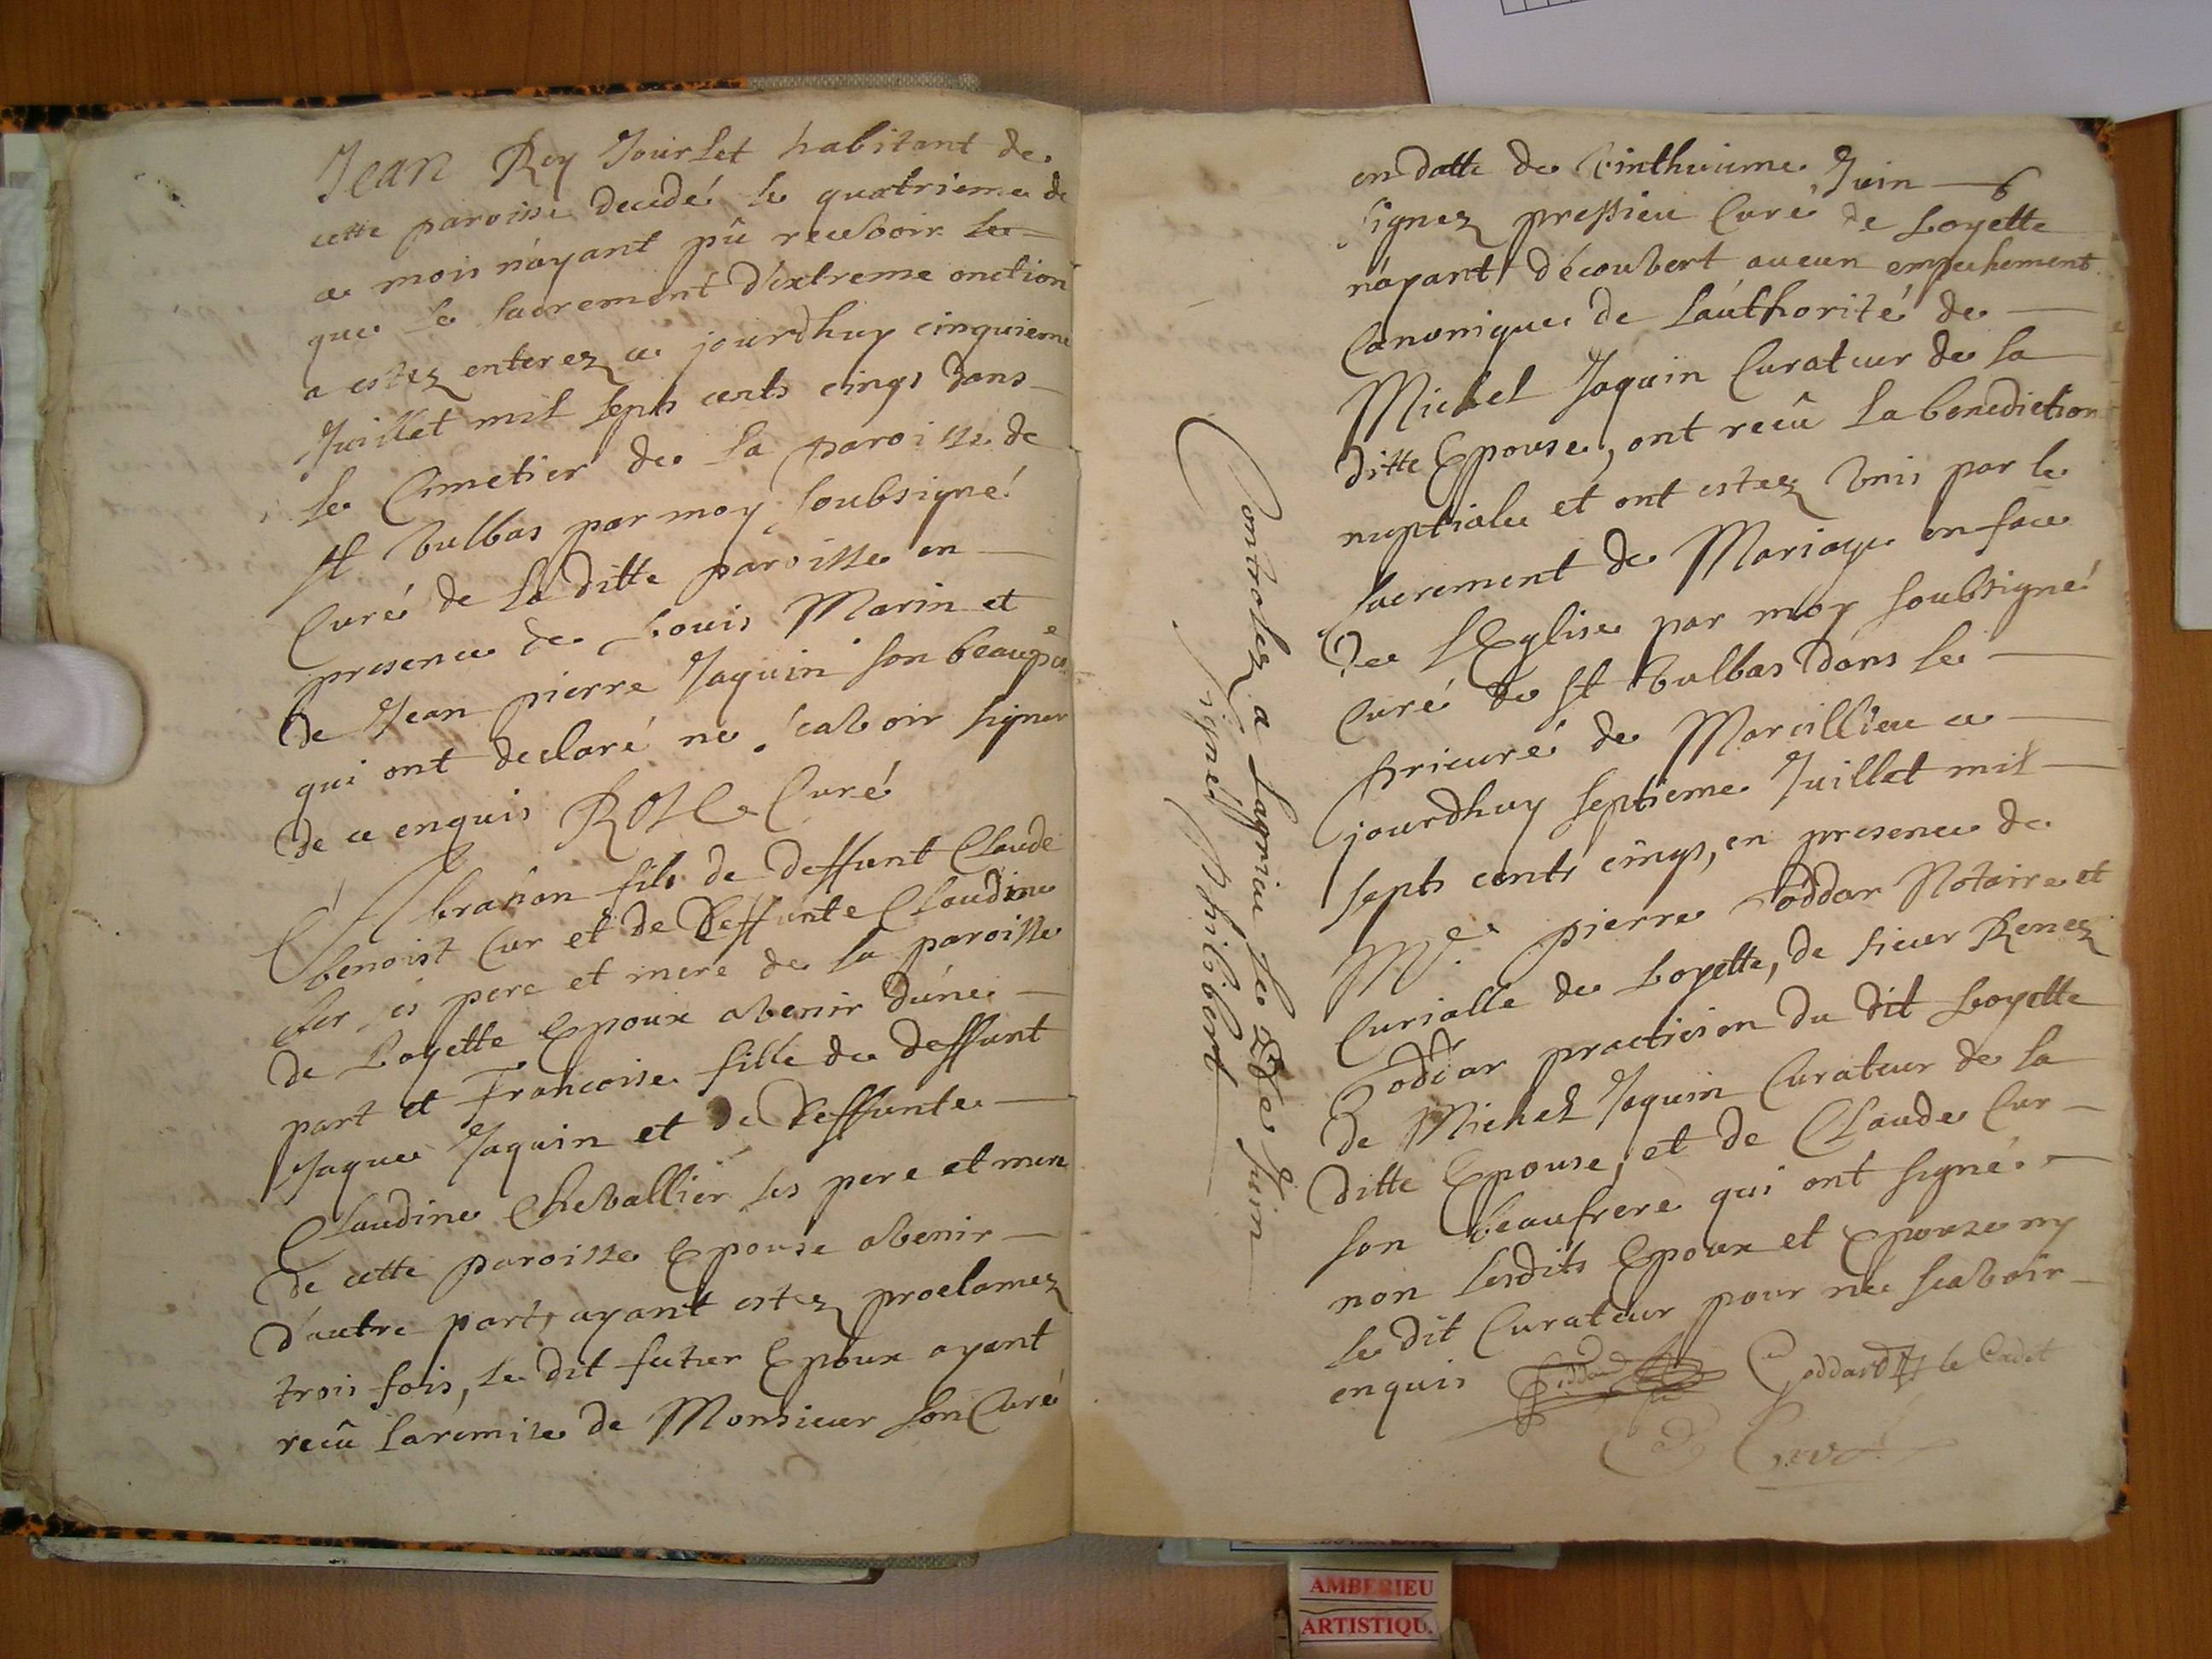 Jean Rey Jourlet habitant de
cette paroisse decedé le quatrieme de
ce mois n'ayant pû recebvoir
que le sacrement d'extreme onction
a estez enterez ce jourdhuy cinquieme
Juillet mil septs cents cinqs dans
le Cimetier de la paroisse de
St Vulbas par moy soubsigné
Curé de la ditte paroisse en
presence de Louis Marin et
de Jean pierre Jaquin son beaupere
qui ont declaré ne scavoir signer
de ce enquis Curé
fils de deffunt Claude
benoist Cur et de Deffunte Claudine
pere et mere de la paroisse
de Loyette Epoux avenir d'une
part et Francoise fille de deffunt
Jaques Jaquin et de Deffunte
Claudine Chevallier ses pere et mere
de cette paroisse Epouse avenir
d'autre part, ayant estez proclamez
trois fois, le dit futur Epoux ayant
recû la remise de Monsieur son Curé
en datte de vinthuieme Juin
Signez pressieu Curé de Loyette
n'ayant découvert aucun empechement
Canonique de l'authorité de
Michel Jaquin Curateur de la
ditte Epouse, ont recû la benediction
nuptiale et ont estez unis par le
sacrement de Mariage en face
de l'Eglise par moy soubsigné
Curé de St Vulbas dans le
prieuré de Marcillieu ce
jourdhuy septieme Juillet mil
septs cents cinqs, en presence de
Me. pierre Goddar Notaire et
Curialle de Loyette, de sieur Renez
Goddar practicien du dit Loyette
de Michel Jaquin Curateur de la
ditte Epouse, et de Claude Cur
son beaufrere qui ont signé
non lesdits Epoux et Epouse ny
le dit Curateur pour ne scavoir
enquis Goddard Goddard le Cadet
Controlez a Lagnieu le 22e Juin
signez Philibert
AMBERIEU
ARTISTIQU